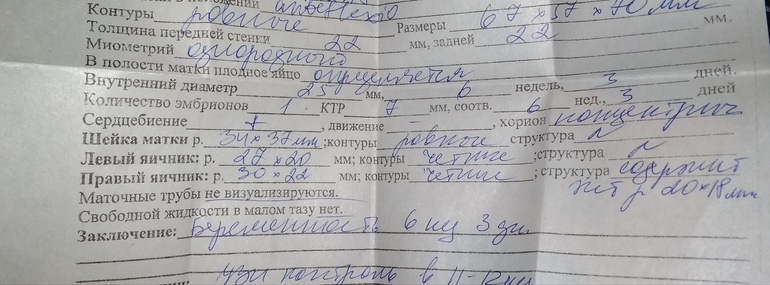 положении anteflexio
Контуры ровные Размеры 67 х 57 х 70 мм
Толщина передней стенки 22 мм, задней 22 мм.
Миометрий однородный
В полости матки плодное яйцо определяется
Внутренний диаметр 25 мм, 6 недель, 3 дней.
Количество эмбрионов 1 КТР 7 мм, соотв. 6 нед., 3 дней
Сердцебиение +, движение –, хорион концентрич
Шейка матки р. 34 х 37 мм; контуры ровные структура N
Левый яичник: р. 27 х 20 мм; контуры четкие ; структура N
Правый яичник: р. 30 х 22 мм; контуры четкие ; структура содержит
жт р 20 х 18 мм
Маточные трубы не визуализируются.
Свободной жидкости в малом тазу нет.
Заключение: Беременность 6 нед 3 дн.
узи контроль в 11-12 нед